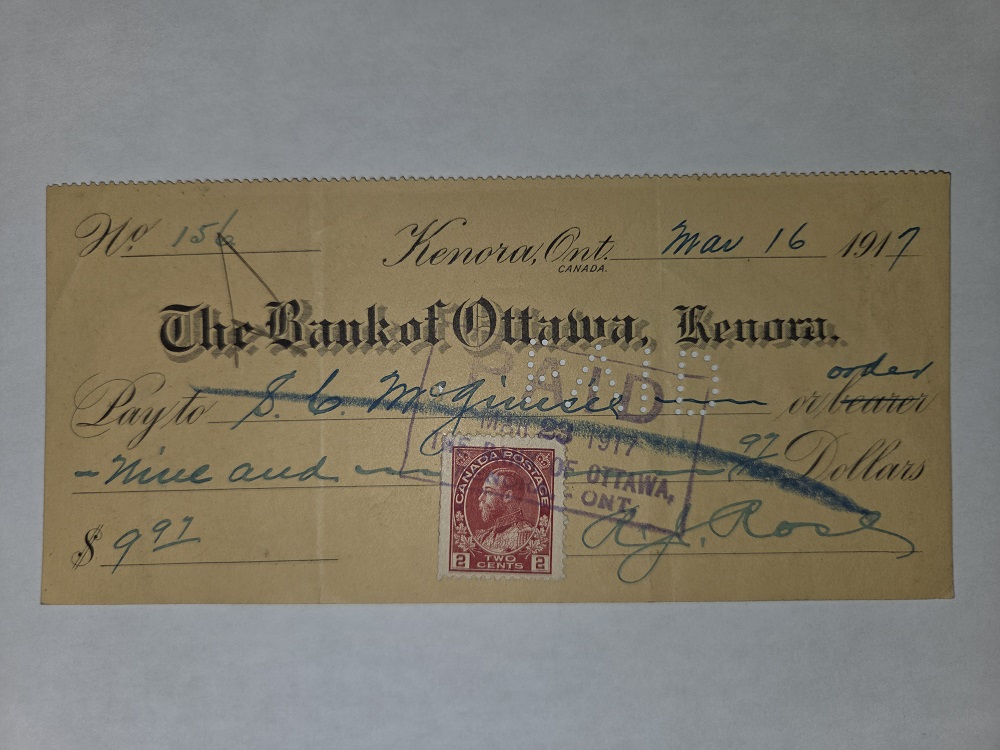 No 156 Kenora, Ont. Mar 16 1917
CANADA.
The Bank of Ottawa, Kenora.
order
Pay to S. C. McGinesse or bearer
Nine and 97 Dollars
PAID
MAR 23 1917
THE BANK OF OTTAWA,
ONT.
$ 9 97
CANADA POSTAGE
2 TWO CENTS 2
A. J. Ross